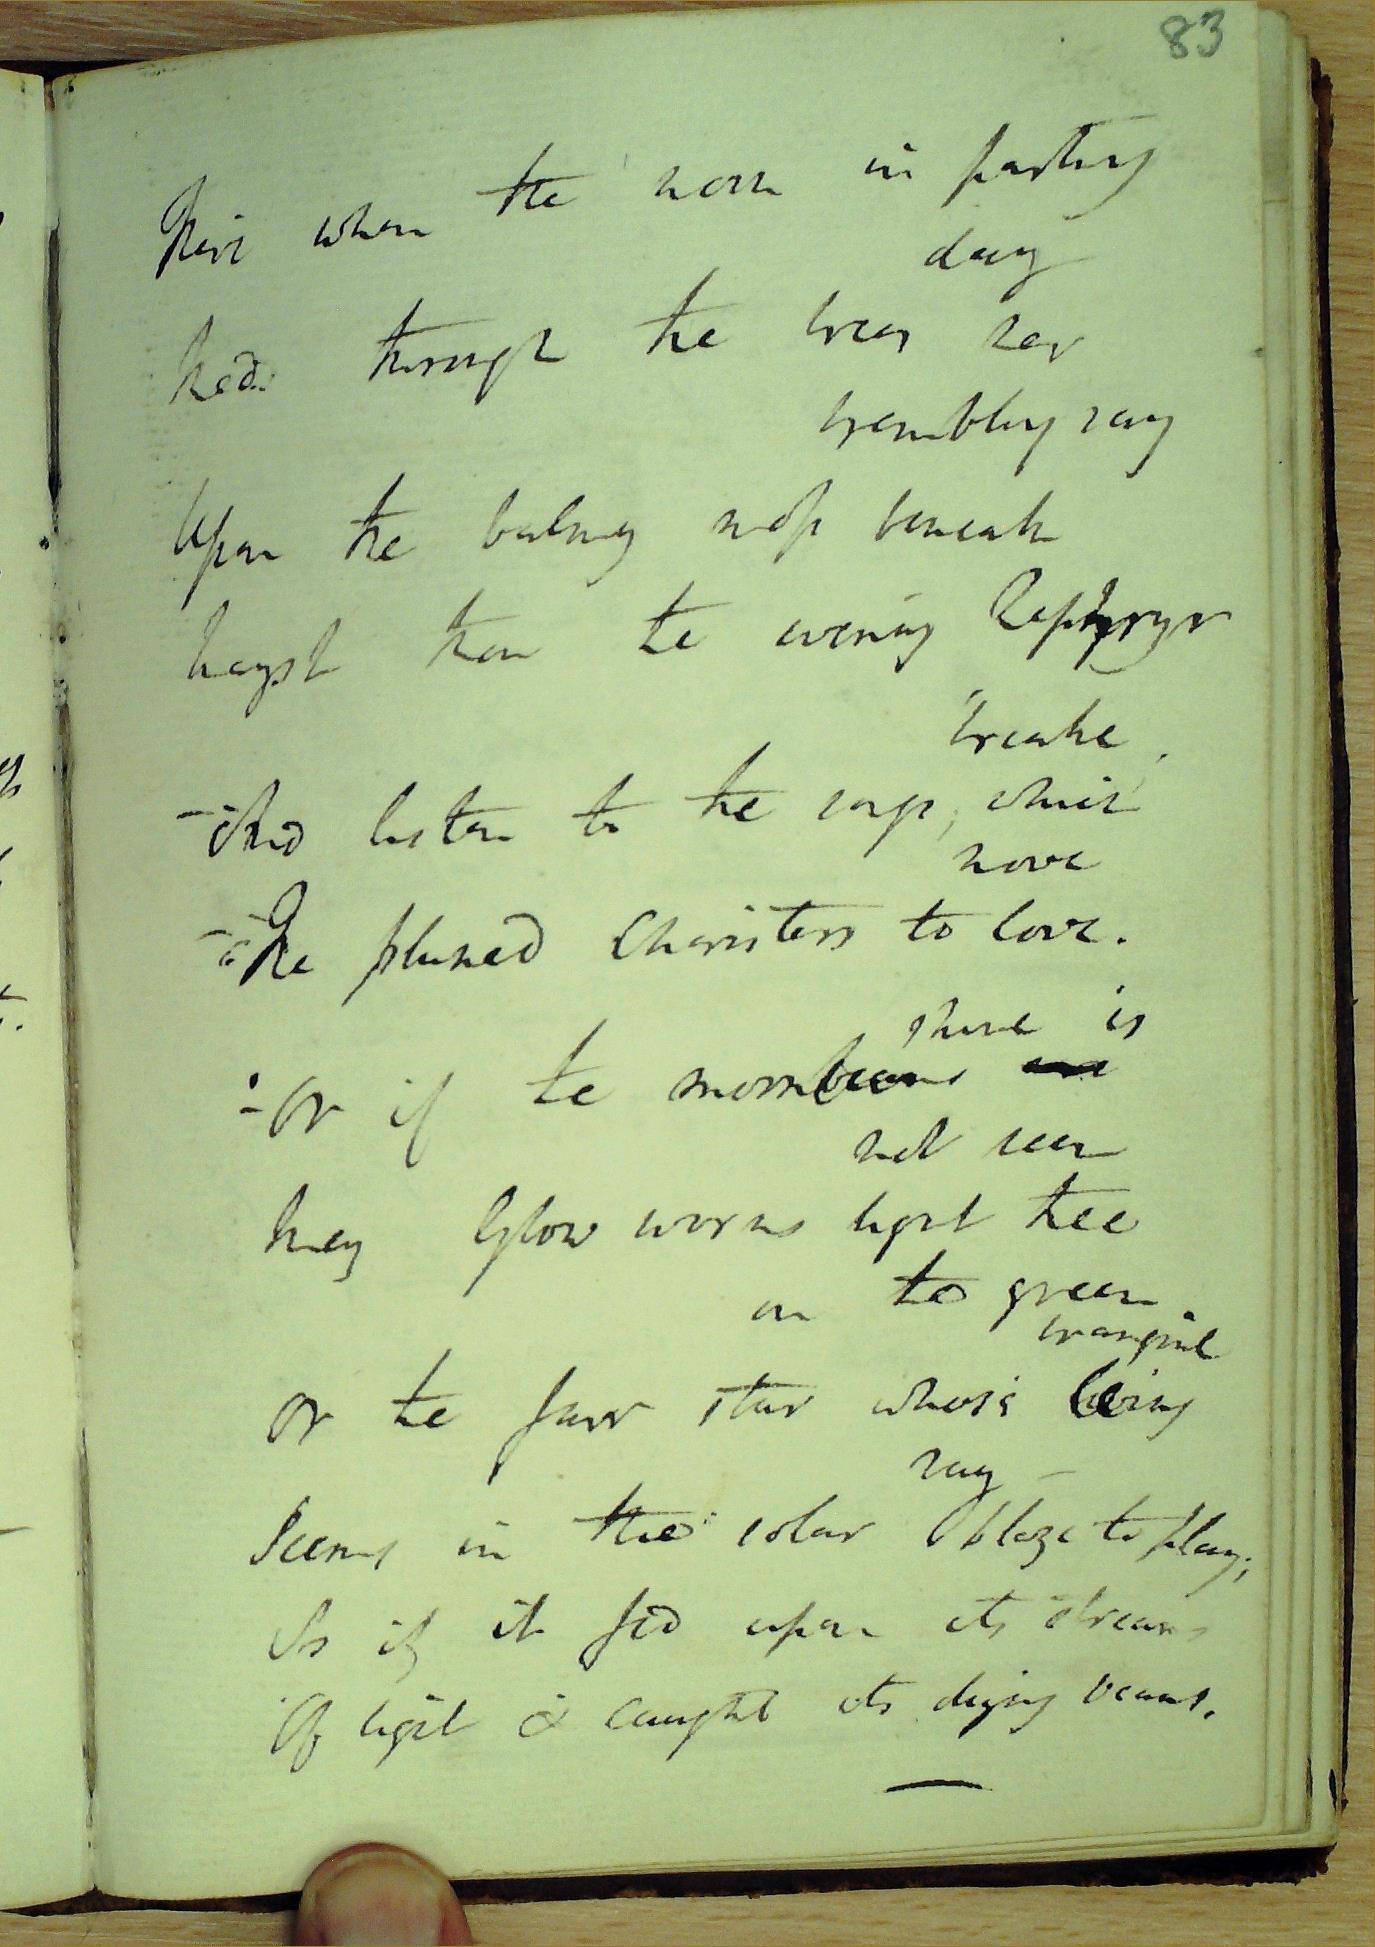 83
Here when the morn in parting
day
Shed through the trees her
trembling ray
Upon the balmy
mayst thou the evening Zephyr
breathe,
And listen to the songs, which
move
The plumed Choristers to love.
shine is
Or if the moonbeams
not seen
May Glow worms light thee
on the green.
tranquil
Or the fair star whose
ray –
Seems in the solar blaze to play;
As if it fed upon its streams
Of light & caught its dying beams.